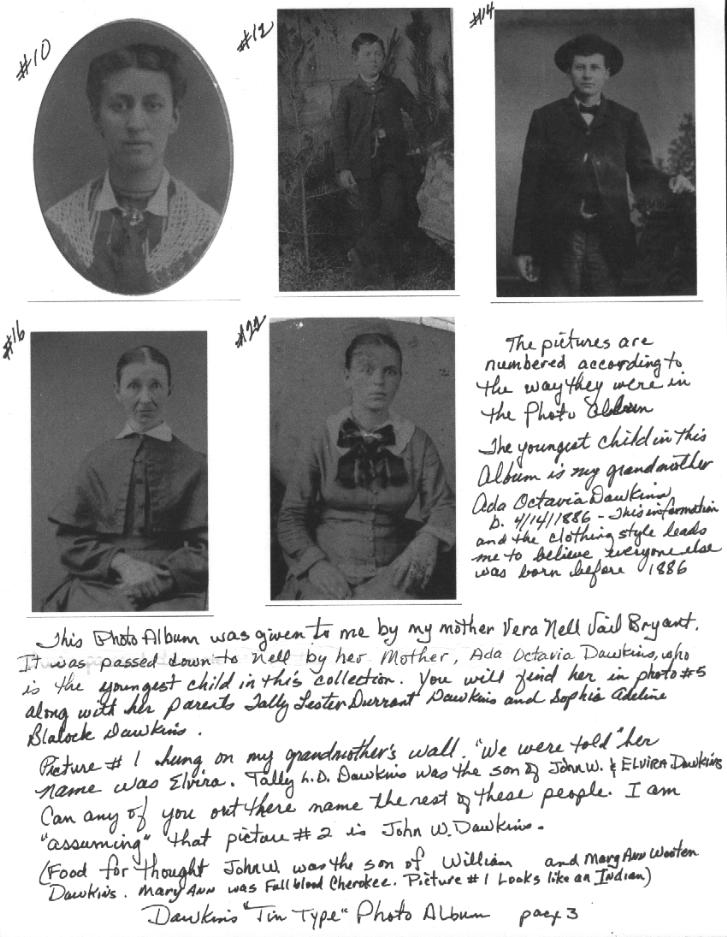 #10
#12
#14
#16
#22
The pictures are
numbered according to
the way they were in
the Photo Album
The youngest child in this
Album is my grandmother
Ada Octavia Dawkins
b. 4/14/1886 - This information
and the clothing style leads
me to believe everyone else
was born before 1886
This Photo Album was given to me by my mother Vera Nell Vail Bryant.
It was passed down to Nell by her Mother, Ada Octavia Dawkins, who
is the youngest child in this collection. You will find her in photo #5
along with her parents Tally Lester Durrant Dawkins and Sophia Adeline
Blalock Dawkins.
Picture #1 hung on my grandmother's wall. "We were told" her
name was Elvira. Tally L.D. Dawkins was the son of John W. & ELVIRA Dawkins
Can any of you out there name the rest of these people. I am
"assuming" that picture #2 is John W. Dawkins.
(Food for thought John W. was the son of William and Mary Ann Wooten
Dawkins. Mary Ann was Full blood Cherokee. Picture #1 Looks like an Indian)
Dawkins "Tin Type" Photo Album page 3